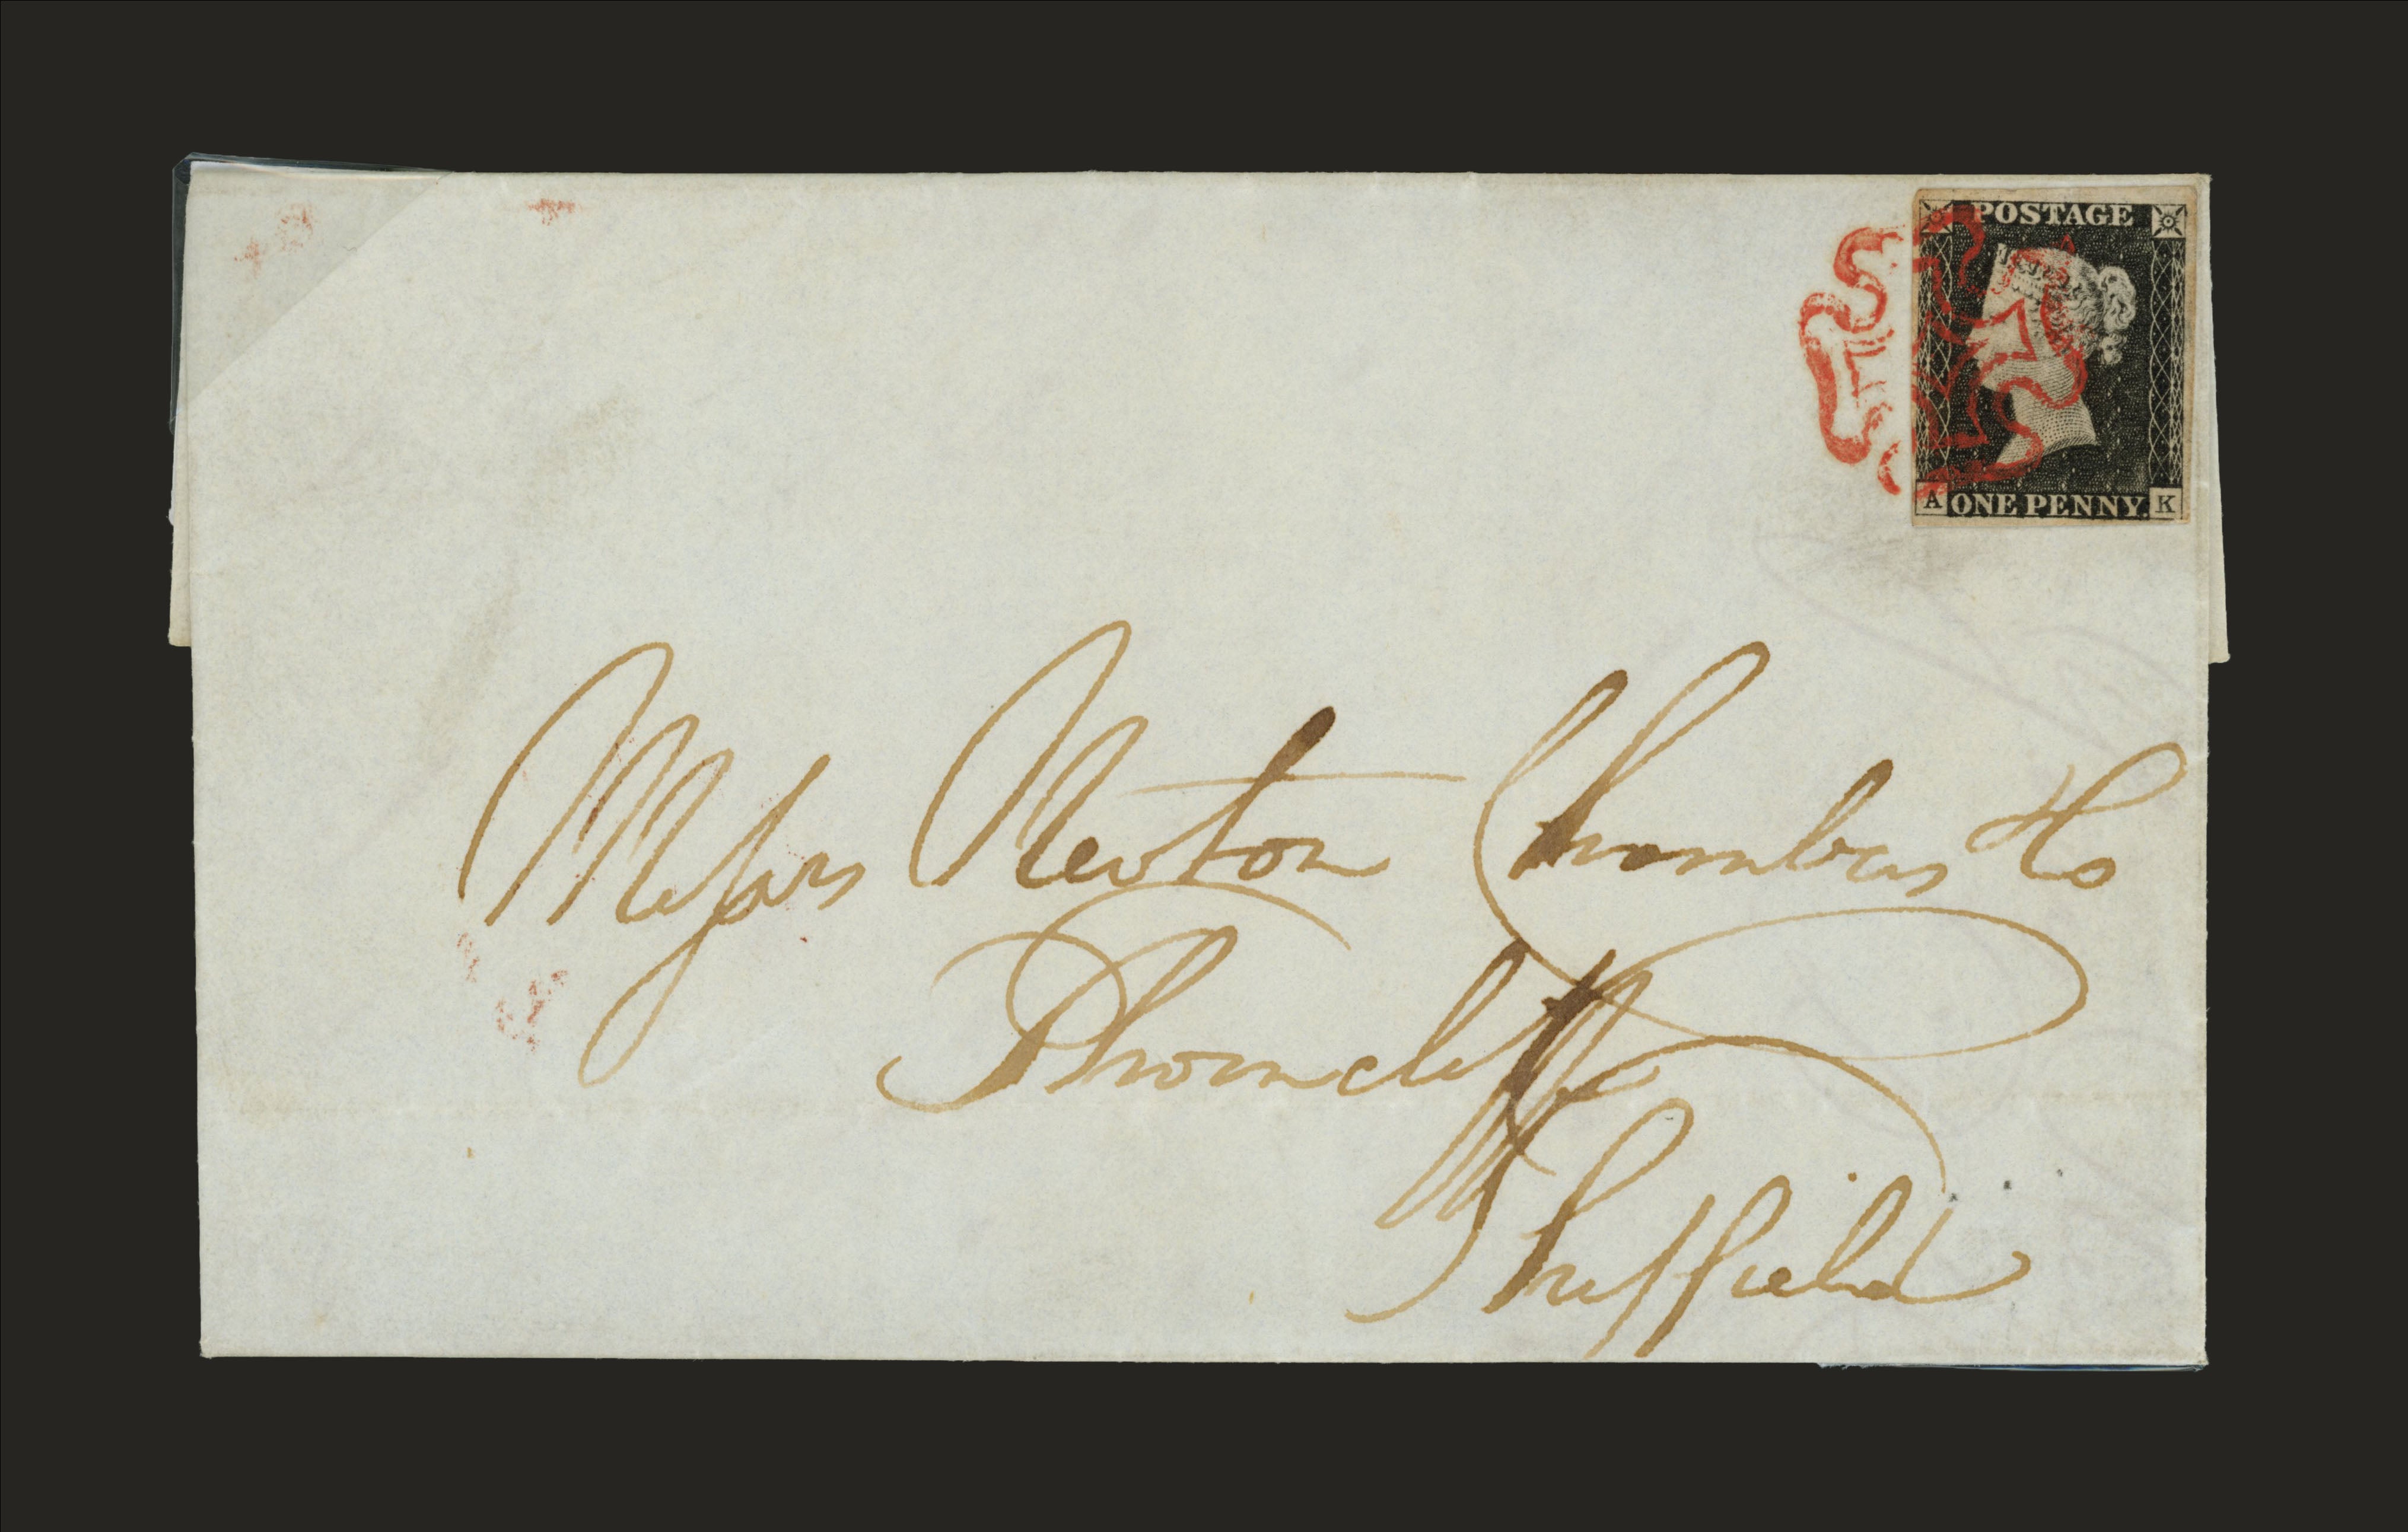 POSTAGE
A ONE PENNY. K
Messrs Newton Chambers & Co
Thorncliffe
Sheffield